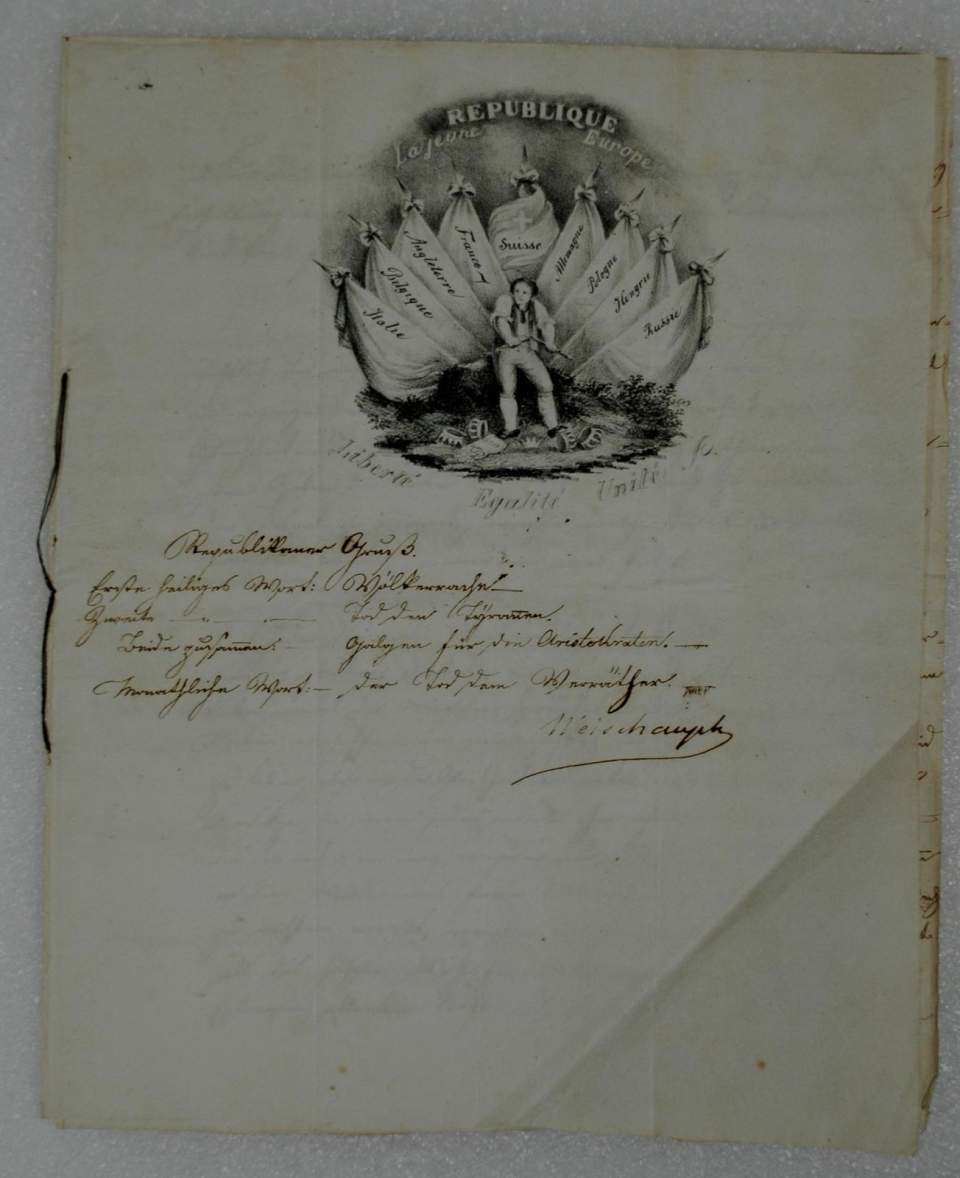 REPUBLIQUE
La jeune Europe
Italie
Belgique
Angleterre
France
Suisse
Allemagne
Pologne
Hongrie
Russie
Liberté Egalité Unité
Republikaner Gruß.
Erste heiliges Wort: Völkerrache! —
Zweite — „ — Tod den Tyrannen.
Beide zusammen: — Galgen für die Aristokraten. —
Monathliche Wort: — der Tod dem Verräther.
Weischaupt